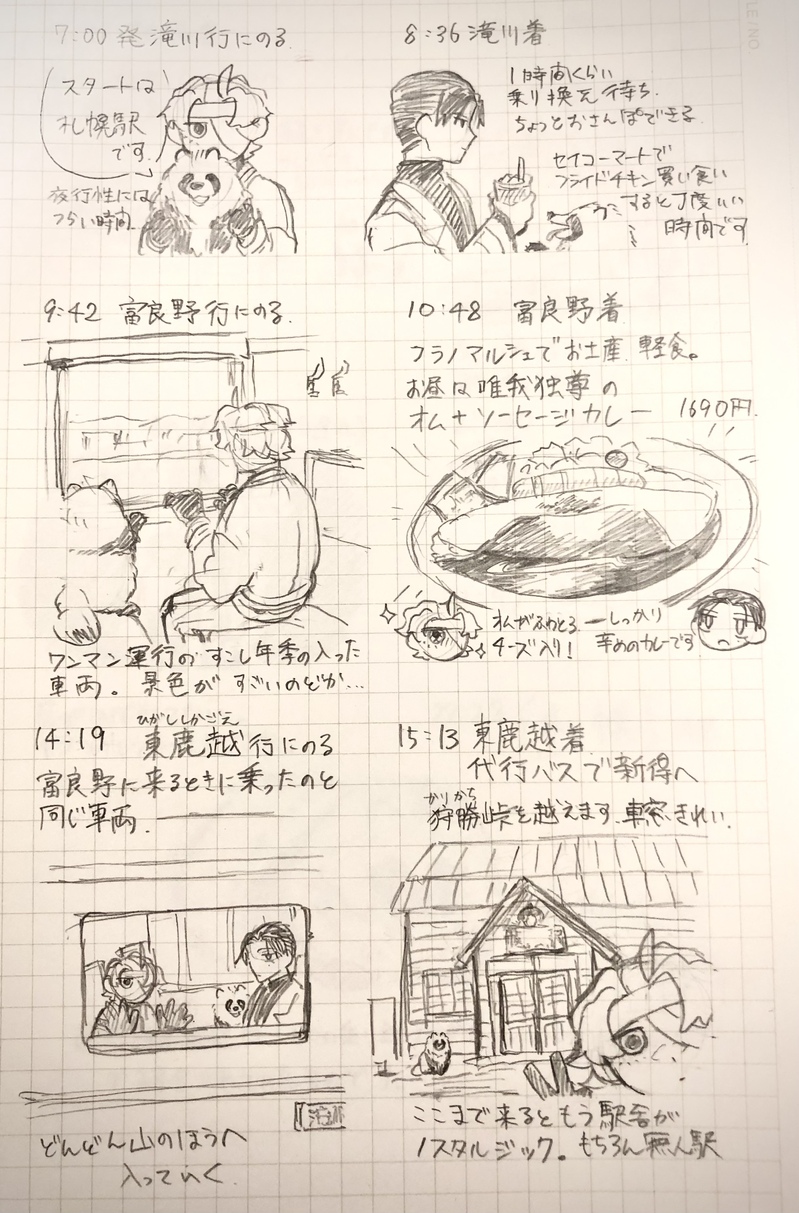 7:00 発 滝川行にのる
スタートは
札幌駅
です
夜行性には
つらい時間
8:36 滝川着
1時間くらい
乗り換え待ち
ちょっとおさんぽできる
セイコーマートで
フライドチキン買い食い
すると丁度いい
時間です
9:42 富良野行にのる
ワンマン運行の すこし年季の入った
車両。景色が すごいのどか…
10:48 富良野着
フラノマルシェでお土産、軽食。
お昼は唯我独尊の
オム+ソーセージカレー 1690円
オムがふわとろ
チーズ入り!
しっかり
辛めのカレーです
14:19 東鹿越行にのる
ひがししかごえ
富良野に来るときに乗ったのと
同じ車両
どんどん山のほうへ
入っていく
15:13 東鹿越着
代行バスで新得へ
かりかち
狩勝峠を越えます 車窓きれい
ここまで来るともう駅舎が
ノスタルジック。もちろん無人駅